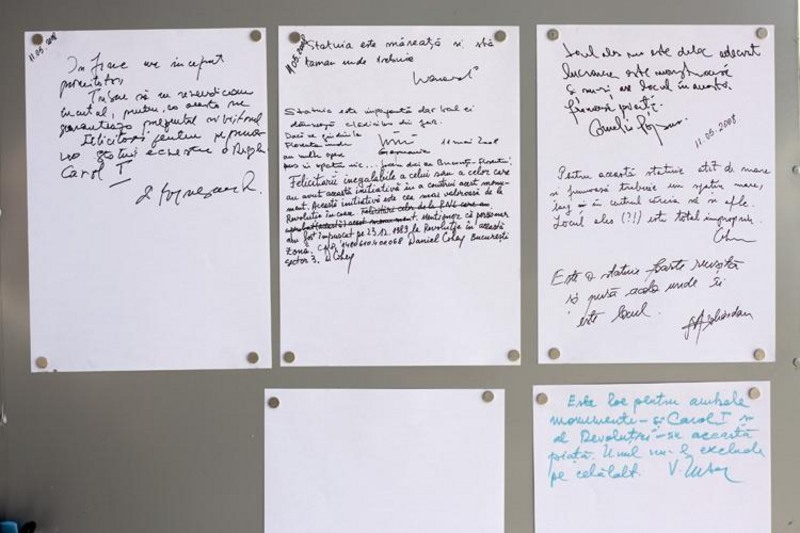 11.05.2008
In fine un inceput
promitator,
Trebuie să ne revendicam
trecutul, pentru că acesta ne
garantează prezentul si viitorul
Felicitări pentru
statui ecvestre a Regelui
Carol I
11.05.2008
Statuia este măreață si stă
taman unde trebuie
Statuia este impozantă dar locul ei
dăunează clădirilor din jur.
Dacă ne gândim la
Florența unde
au multe opere
11 mai 2008
mus în spatiu mic... Unde dai de București-Florența!
Felicitări inegalabile a celui sau a celor care
au avut această inițiativă în a construi acest monu-
ment. Această initiativă este cea mai valoroasă de la
Revoluție încoace. Felicitări celor de la
acest monument. Menționez că personal
am fost împușcat pe 23.12.1989 la Revoluție în această
zonă. Daniel Colay București
sector 3. D Colay
Locul ales nu este deloc adecvat
lucrarea este monstruoasă
si nu-si are locul în aceasta
frumoasă piață.
11.05.2008
Pentru această statuie atât de mare
si frumoasă trebuie un spatiu mare,
larg si în centrul căruia să se afle.
Locul ales (?!) este total impropriu.
Este o statuie foarte reusită
si pusă acolo unde îi
este locul.
Este loc pentru ambele
monumente - si Carol I si
al Revoluției - în această
piață. Unul nu-l exclude
pe celălalt.